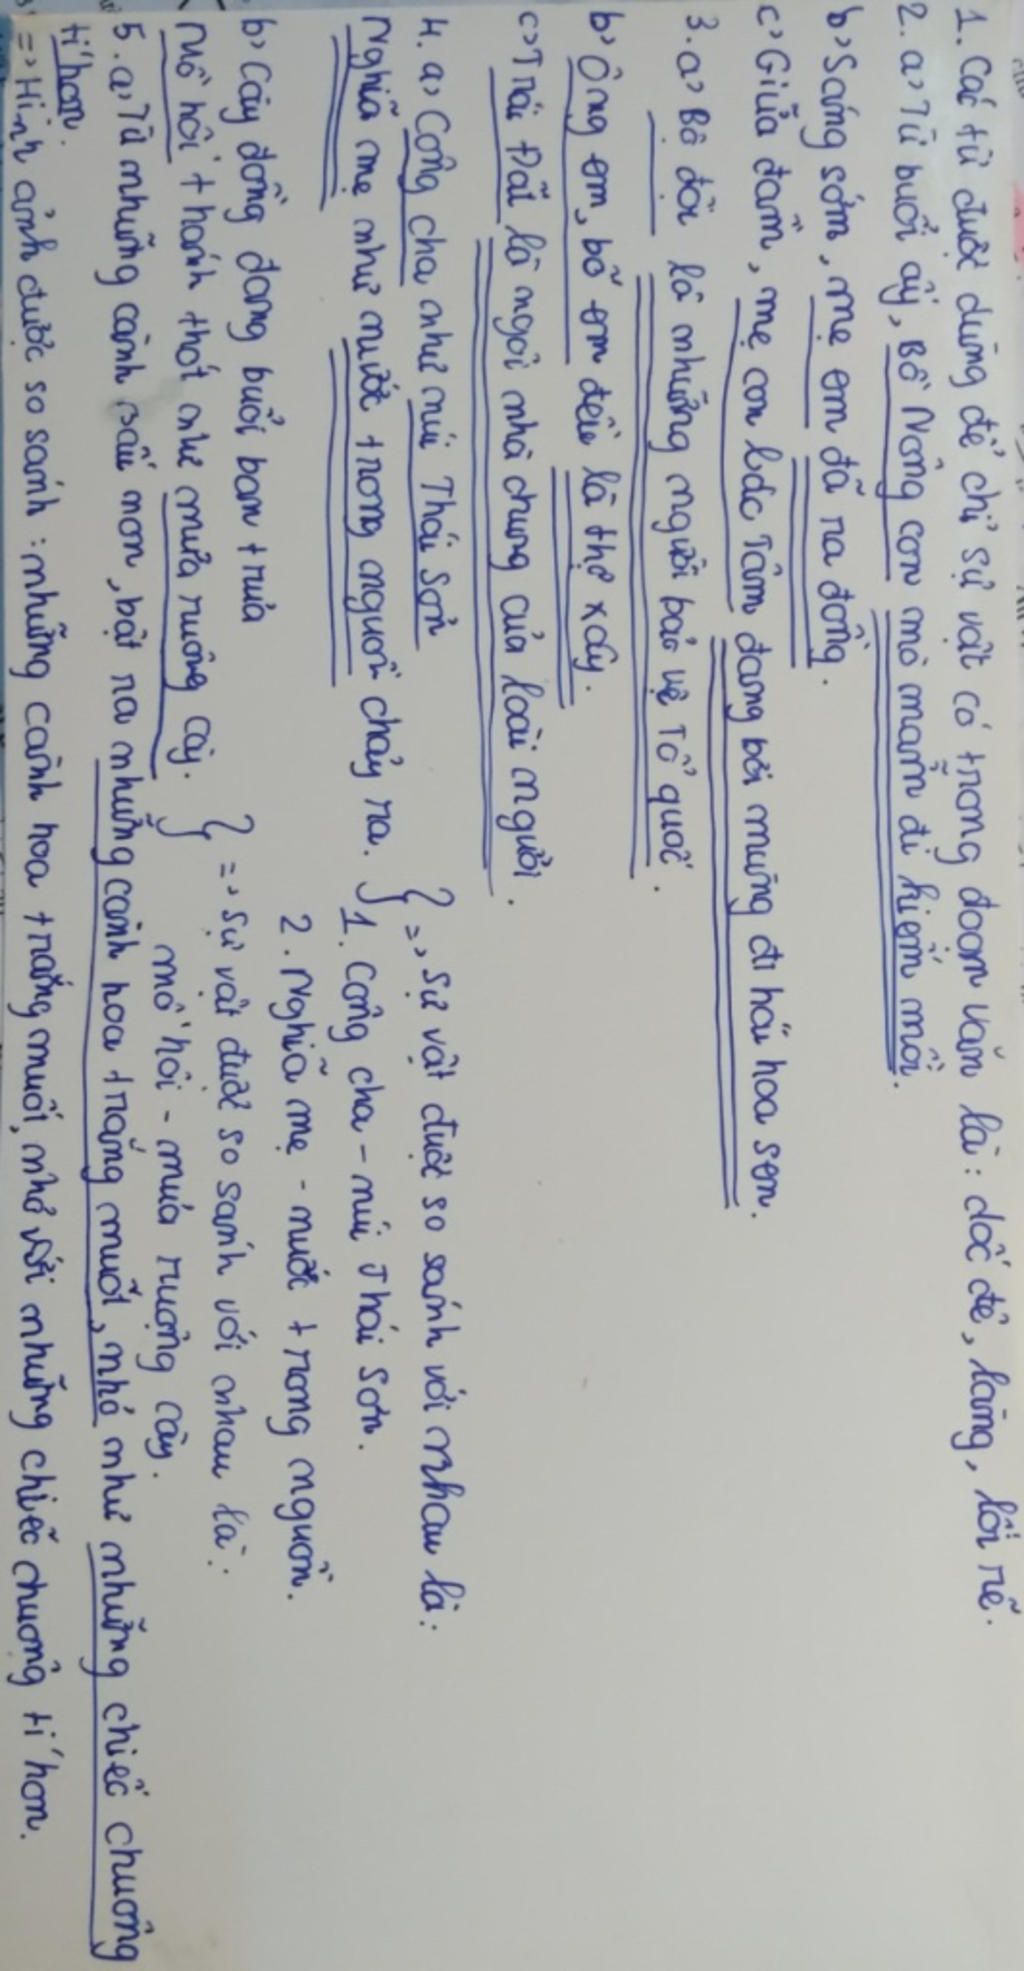 1. Các từ được dùng để chỉ sự vật có trong đoạn văn là: dốc đê, làng, lối rẽ.
2. a, Từ buổi ấy, Bồ Nông con mò mẫm đi kiếm mồi.
b, Sáng sớm, mẹ em đã ra đồng.
c, Giữa đầm, mẹ con bác Tâm đang bơi mủng đi hái hoa sen.
3. a, Bộ đội là những người bảo vệ Tổ quốc.
b, Ông em, bố em đều là thợ xây.
c, Trái Đất là ngôi nhà chung của loài người.
4. a, Công cha như núi Thái Sơn
Nghĩa mẹ như nước trong nguồn chảy ra. } => Sự vật được so sánh với nhau là:
1. Công cha - núi Thái Sơn.
2. Nghĩa mẹ - nước trong nguồn.
b, Cày đồng đang buổi ban trưa
Mồ hôi thánh thót như mưa ruộng cày. } => Sự vật được so sánh với nhau là:
mồ hôi - mưa ruộng cày.
5. a, Từ những cành sấu non, bật ra những cành hoa trắng muốt, nhỏ như những chiếc chuông
tí hon.
=> Hình ảnh được so sánh: những cành hoa trắng muốt, nhỏ với những chiếc chuông tí hon.